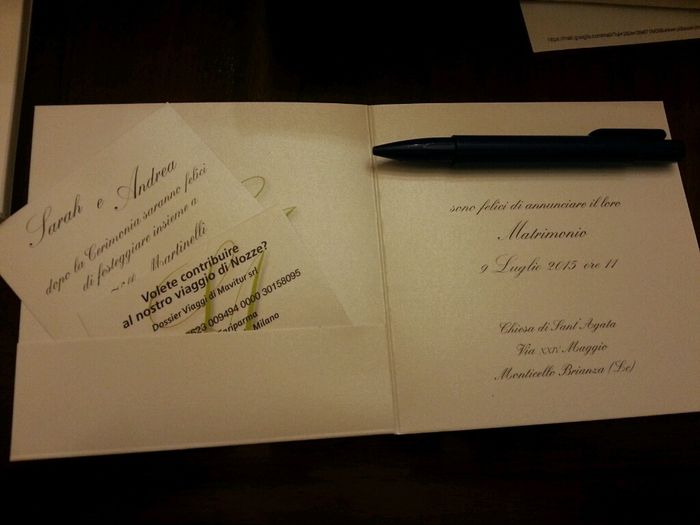 Sarah e Andrea
dopo la Cerimonia saranno felici
di festeggiare insieme a
Martinelli
Volete contribuire
al nostro viaggio di Nozze?
Dossier Viaggi di Mavitur srl
009494 0000 30158095
Cariparma
Milano
sono felici di annunciare il loro
Matrimonio
9 Luglio 2015 ore 11
Chiesa di Sant'Agata
Via XXIV Maggio
Monticello Brianza (Lc)